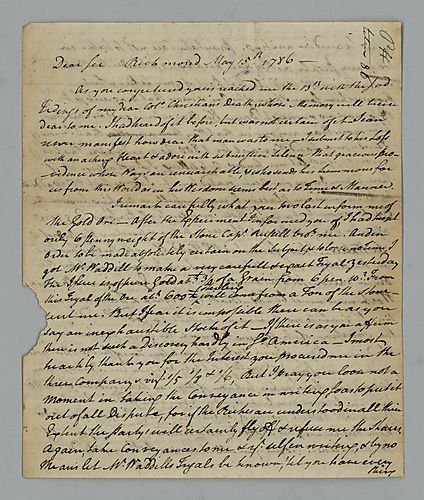 Dear Sir Richmond May 15th 1786 —
As you conjectured yours reached me the 13th with the sad
tidings of my dear Colo. Christians Death, whose Memory will be ever
dear to me. I had heard of it before but was not certain of it. I can
never manifest how dear that man was to me. I submit to his loss
with an aching Heart & adore with submissive silence that gracious pro-
vidence whose Ways are unsearchable, & who sends his Summons for
us from this World as in his Wisdom seems best as to Time & Manner.
I remark carefully what your two last inform me of
the Gold Ore — After the Experiment I informed you of I had kept
only 6 penny weight of the Stone Capt. Russell brot. me. And in
order to be made absolutely certain on the Subject, & to lose no time, I
got Mr. Waddill to make a very careful & exact Tryal yesterday
for
this Tryal of the Ore abt. 600 will come from a Ton of the Stone
sent me: But I fear it is impossible there can be as you
say an inexhaustible Stock of it — If there is as you affirm
there is not such a discovery hardly in So. America — I most
heartily thank you for the Interest you procured me in the
three Companys viz. 1/5 1/7 & 1/6, But I pray you loose not a
Moment in taking the Conveyance in writing so as to put it
out of all Dispute, for if the Riches are understood in all their
Extent the Partys will certainly fly off & refuse me the Shares.
Again, take Conveyances to me & yr. self in writing, & by no
Means let Mr. Waddills Tryals be known, 'til you have every
thing